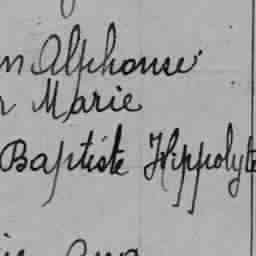 Alphonse
Marie
Baptiste Hippolyte